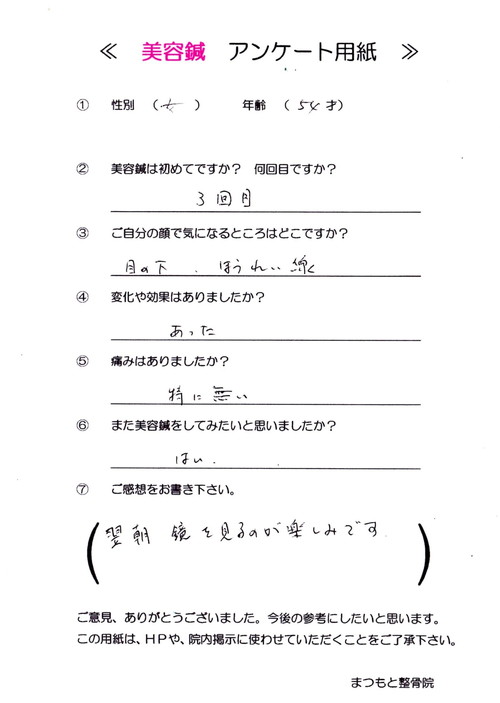 ≪ 美容鍼 アンケート用紙 ≫
① 性別 (女) 年齢 (54才)
② 美容鍼は初めてですか? 何回目ですか?
3回目
③ ご自分の顔で気になるところはどこですか?
目の下 、ほうれい線
④ 変化や効果はありましたか?
あった
⑤ 痛みはありましたか?
特に無い
⑥ また美容鍼をしてみたいと思いましたか?
はい.
⑦ ご感想をお書き下さい。
(翌朝 鏡を見るのが楽しみです)
ご意見、ありがとうございました。今後の参考にしたいと思います。
この用紙は、HPや、院内掲示に使わせていただくことをご了承下さい。
まつもと整骨院